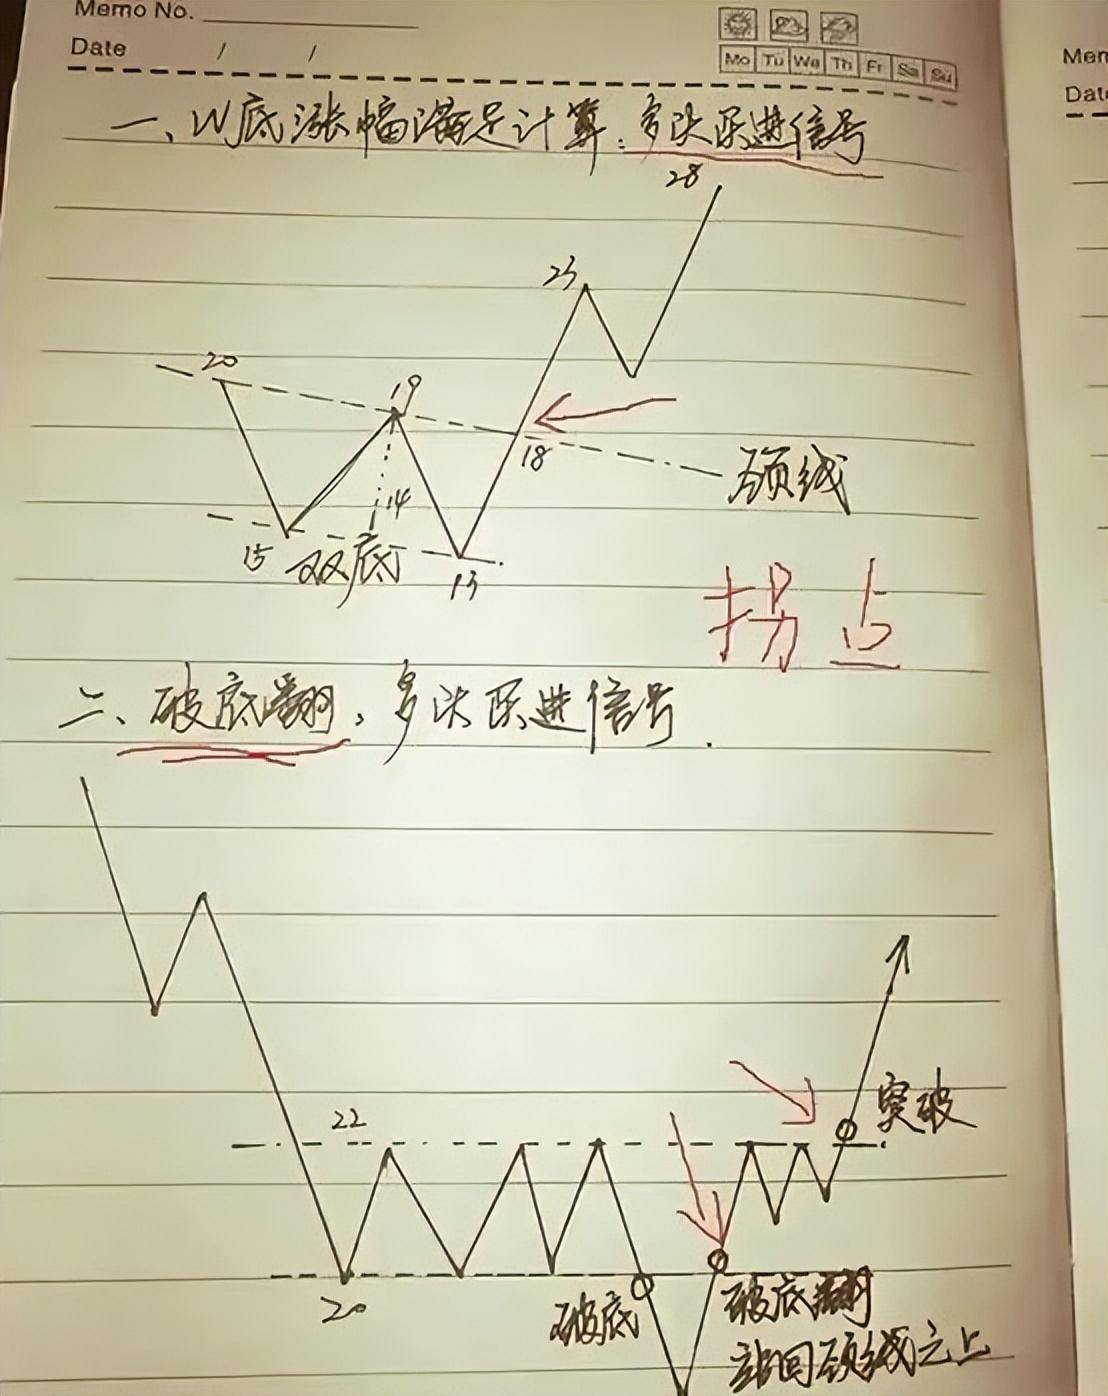 Memo No.
Date / /
Mo Tu We Th Fr Sa Su
Mem
Dat
一、W底涨幅满足计算:多头跃进信号
28
23
20
19
18
颈线
14
15 双底
13
拐点
二、破底翻,多头跃进信号.
突破
22
20
破底
破底翻
站回颈线之上